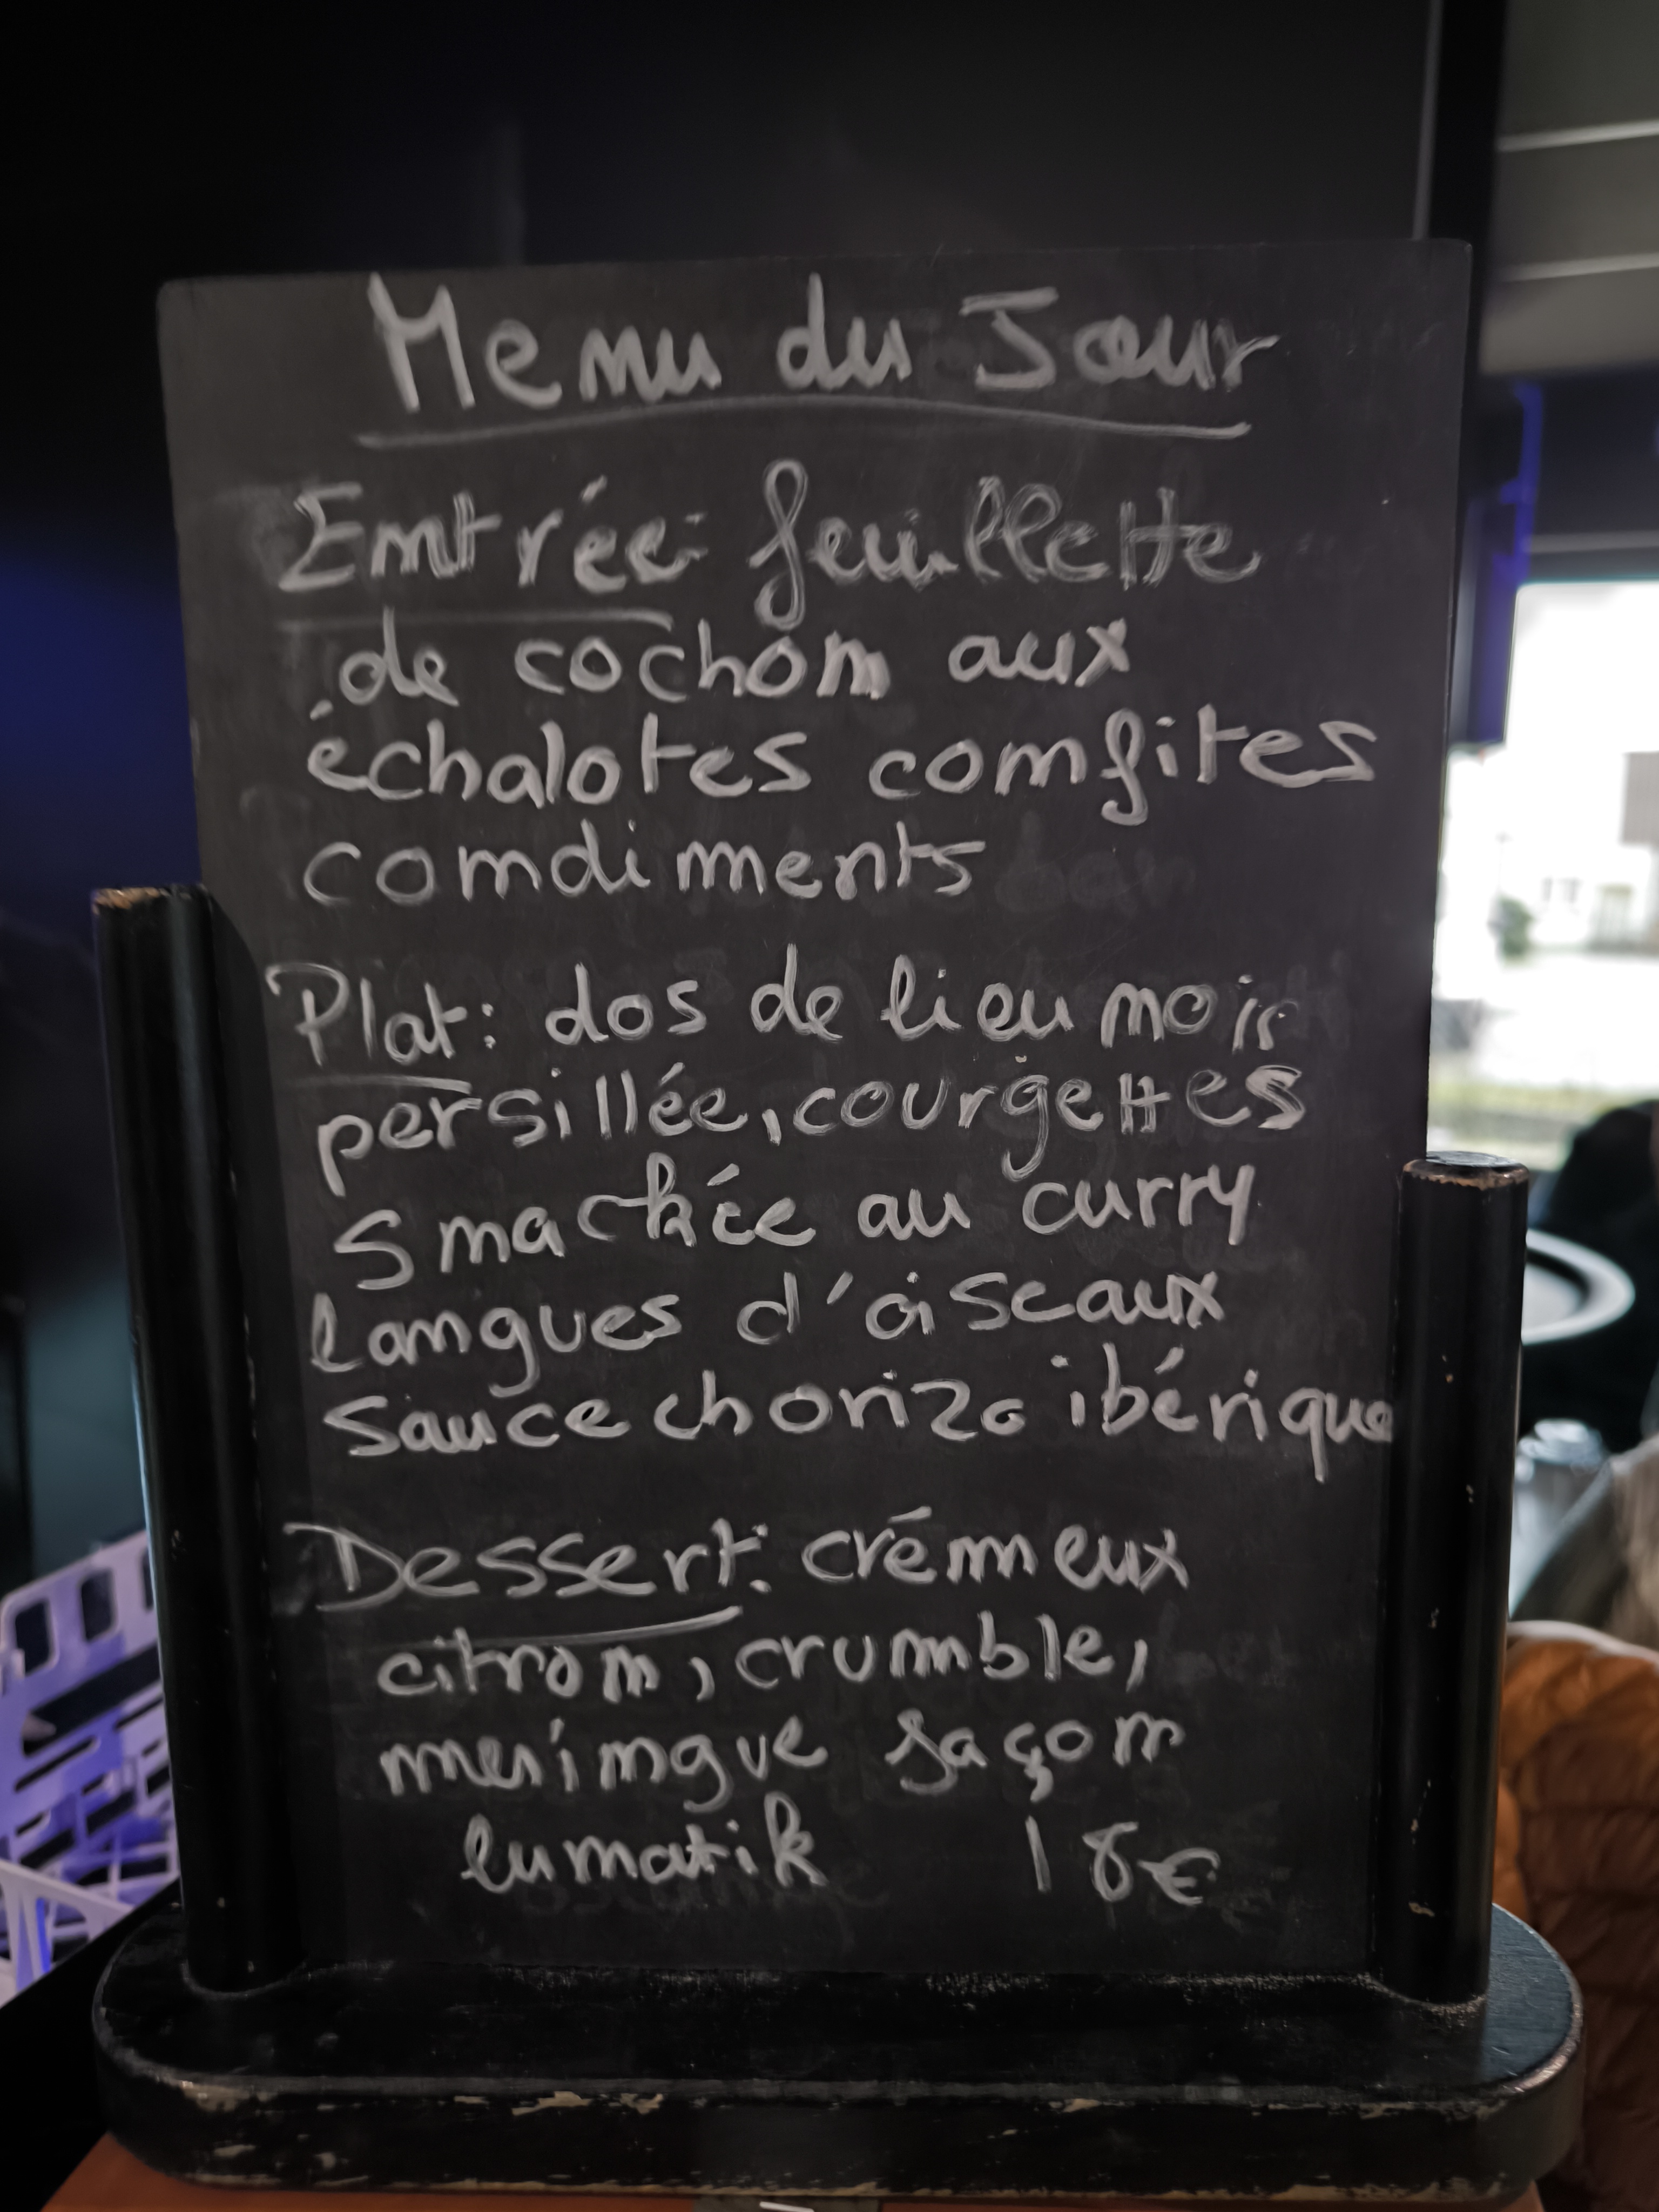 Menu du Jour
Entrée: feuillette
de cochon aux
échalotes confites
condiments
Plat: dos de lieu noir
persillée, courgettes
smachée au curry
langues d'oiseaux
sauce chorizo ibérique
Dessert: crémeux
citron, crumble,
meringue façon
lunatik 18€